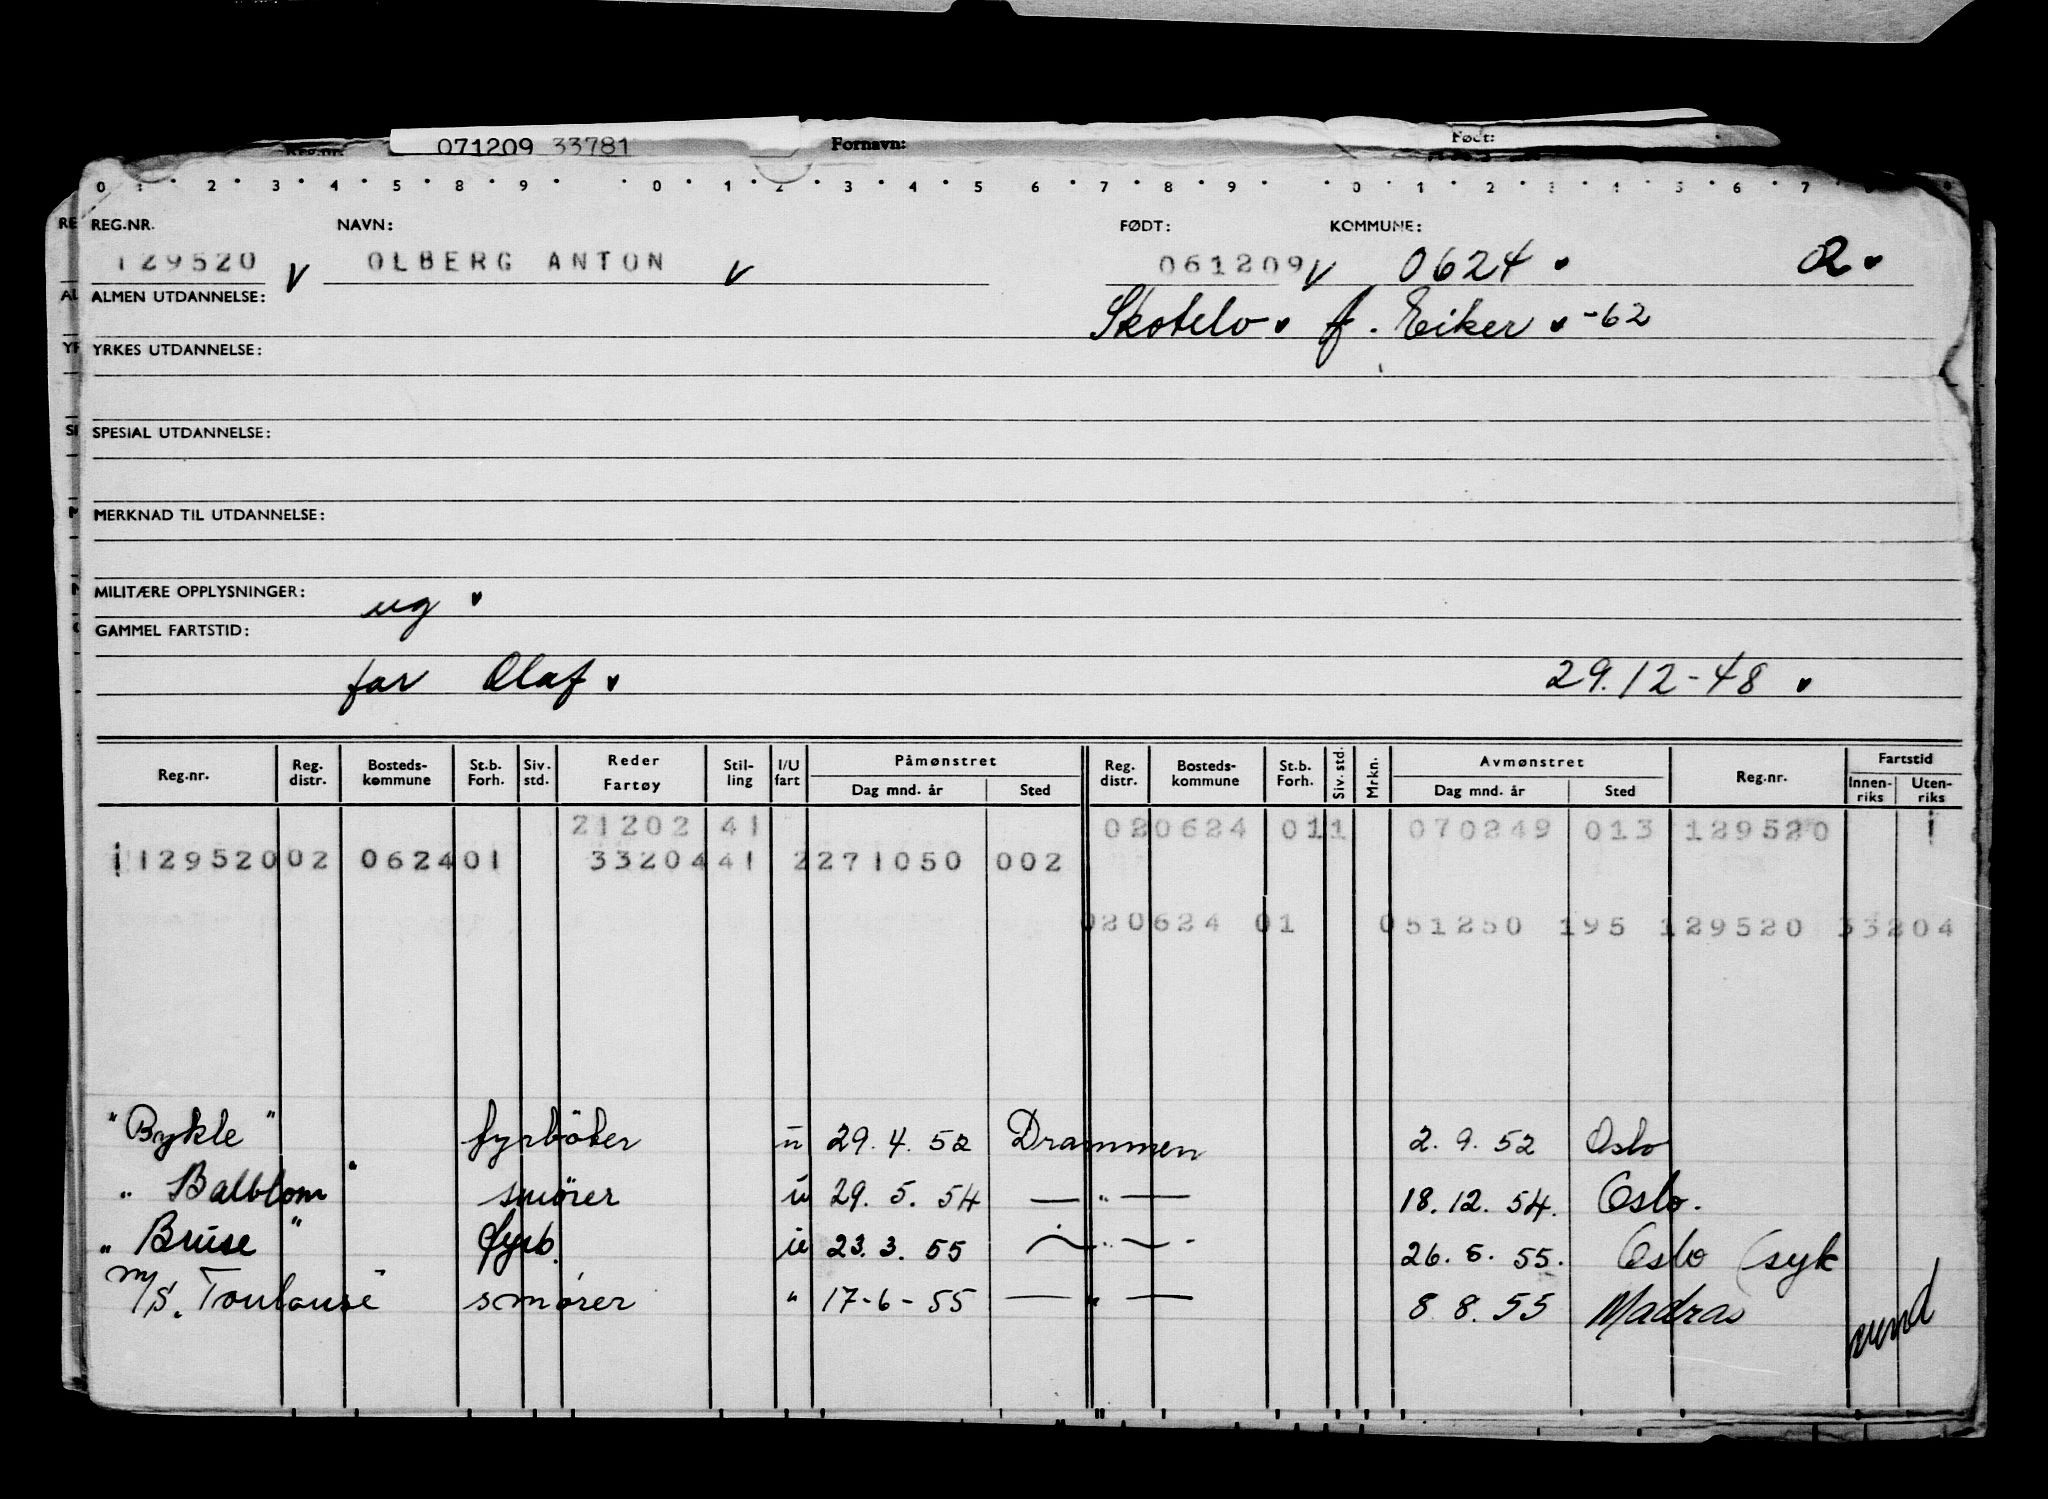 071209 33781 Fornavn: Født:
0 1 2 3 4 5 8 9 0 1 2 3 4 5 6 7 8 9 0 1 2 3 4 5 6 7
REG.NR. NAVN: FØDT: KOMMUNE:
129520 v OLBERG ANTON v 061209 v 0624 02
ALMEN UTDANNELSE: Skotselv f. Eiker -62
YRKES UTDANNELSE:
SPESIAL UTDANNELSE:
MERKNAD TIL UTDANNELSE:
MILITÆRE OPPLYSNINGER: ug
GAMMEL FARTSTID:
far Olaf 29.12-48
Reg.nr. Reg. distr. Bosteds-kommune St.b. Forh. Siv. std. Reder Fartøy Stil-ling I/U fart Påmønstret Dag mnd. år Sted Reg. distr. Bosteds-kommune St.b. Forh. Siv. std. Mrkn. Avmønstret Dag mnd. år Sted Reg.nr. Fartstid Innen-riks Uten-riks
21202 41 020624 011 070249 013 129520 1
1129520 02 0624 01 33204 41 2 271050 002
020624 01 051250 195 129520 33204
"Bykle" fyrböter u 29.4.52 Drammen 2.9.52 Oslo
"Balblom" smører u 29.5.54 — " — 18.12.54. Oslo.
"Bruse" fyrb. u 23.3.55 — " — 26.5.55. Oslo (syk
M/S. Toulouse smører " 17-6-55 — " — 8.8.55 Madras